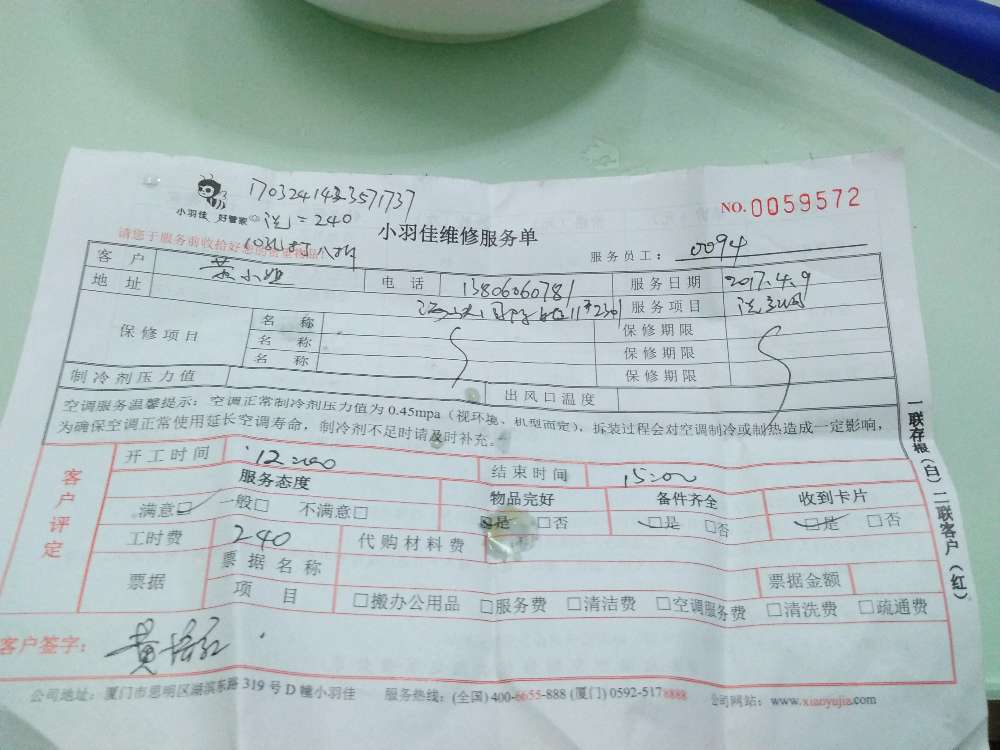 17032414233571737
小羽佳 好管家 洗=240
NO.0059572
小羽佳维修服务单
请您于服务前收拾好您的贵重物品!
服务员工: 0094
客户 黄小姐 电话 13806060781 服务日期 2017.4.9
地址 服务项目
保修项目 名称 保修期限
名称 保修期限
名称 保修期限
制冷剂压力值 出风口温度
空调服务温馨提示:空调正常制冷剂压力值为0.45mpa(视环境、机型而定),拆装过程会对空调制冷或制热造成一定影响,
为确保空调正常使用延长空调寿命,制冷剂不足时请及时补充。
一联存根(白)二联客户(红)
客户评定
开工时间 12:00 结束时间 15:00
服务态度 物品完好 备件齐全 收到卡片
满意□ 一般□ 不满意□ □是 □否 □是 □否 □是 □否
工时费 240 代购材料费
票据 票据名称 票据金额
项目 □搬办公用品 □服务费 □清洁费 □空调服务费 □清洗费 □疏通费
客户签字:
公司地址:厦门市思明区湖滨东路319号D幢小羽佳 服务热线:(全国)400-6655-888 (厦门)0592-5178888 公司网站:www.xiaoyujia.com